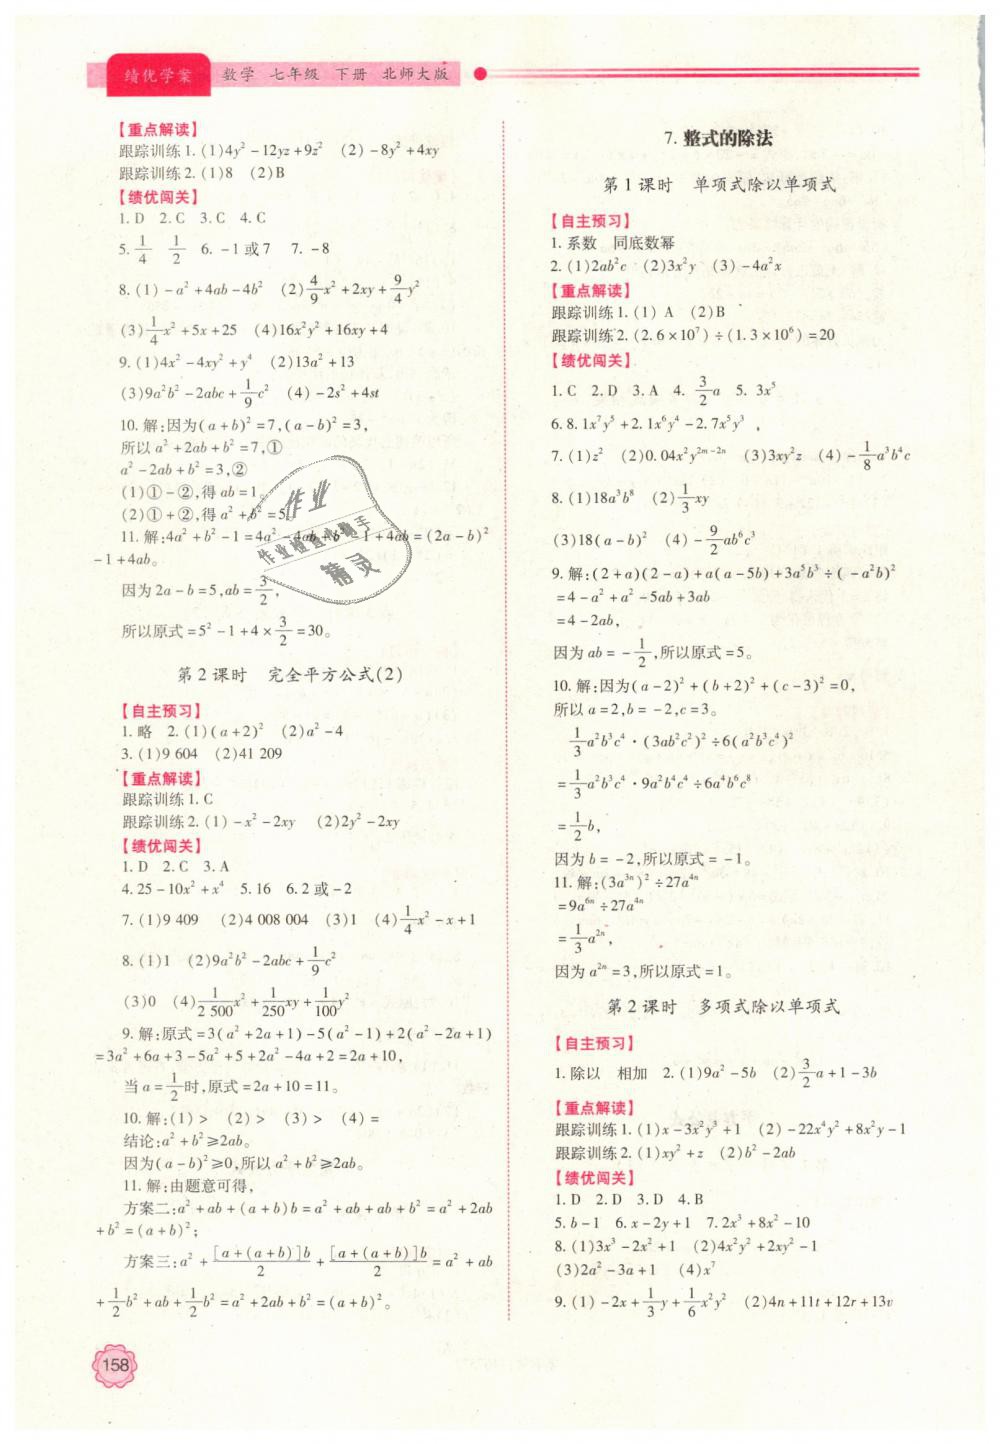 绩优学案 数学 七年级 下册 北师大版
【重点解读】
跟踪训练1. (1)4y²-12yz+9z² (2)-8y²+4xy
跟踪训练2. (1)8 (2)B
【绩优闯关】
1. D 2. C 3. C 4. C
5. 1/4 1/2 6. -1或7 7. -8
8. (1)-a²+4ab-4b² (2)4/9x²+2xy+9/4y²
(3)1/4x²+5x+25 (4)16x²y²+16xy+4
9. (1)4x²-4xy²+y⁴ (2)13a²+13
(3)9a²b²-2abc+1/9c² (4)-2s²+4st
10. 解:因为(a+b)²=7,(a-b)²=3,
所以a²+2ab+b²=7,①
a²-2ab+b²=3,②
(1)①-②,得ab=1。
(2)①+②,得a²+b²=5。
11. 解:4a²+b²-1=4a²-4ab+b²-1+4ab=(2a-b)²
-1+4ab。
因为2a-b=5,ab=3/2,
所以原式=5²-1+4×3/2=30。
第2课时 完全平方公式(2)
【自主预习】
1. 略 2. (1)(a+2)² (2)a²-4
3. (1)9 604 (2)41 209
【重点解读】
跟踪训练1. C
跟踪训练2. (1)-x²-2xy (2)2y²-2xy
【绩优闯关】
1. D 2. C 3. A
4. 25-10x²+x⁴ 5. 16 6. 2或-2
7. (1)9 409 (2)4 008 004 (3)1 (4)1/4x²-x+1
8. (1)1 (2)9a²b²-2abc+1/9c²
(3)0 (4)1/2 500x²+1/250xy+1/100y²
9. 解:原式=3(a²+2a+1)-5(a²-1)+2(a²-2a+1)
=3a²+6a+3-5a²+5+2a²-4a+2=2a+10,
当a=1/2时,原式=2a+10=11。
10. 解:(1)> (2)> (3)> (4)=
结论:a²+b²≥2ab。
因为(a-b)²≥0,所以a²+b²≥2ab。
11. 解:由题意可得,
方案二:a²+ab+(a+b)b=a²+ab+ab+b²=a²+2ab
+b²=(a+b)²;
方案三:a²+[a+(a+b)]b/2+[a+(a+b)]b/2=a²+ab
+1/2b²+ab+1/2b²=a²+2ab+b²=(a+b)²。
158
7. 整式的除法
第1课时 单项式除以单项式
【自主预习】
1. 系数 同底数幂
2. (1)2ab²c (2)3x²y (3)-4a²x
【重点解读】
跟踪训练1. (1) A (2)B
跟踪训练2. (2.6×10⁷)÷(1.3×10⁶)=20
【绩优闯关】
1. C 2. D 3. A 4. 3/2a 5. 3x⁵
6. 8.1x⁷y⁵+2.1x⁶y⁴-2.7x⁵y³
7. (1)z² (2)0.04x²y²ᵐ⁻²ⁿ (3)3xy²z (4)-1/8a³b⁴c
8. (1)18a³b⁸ (2)1/3xy
(3)18(a-b)² (4)-9/2ab⁶c³
9. 解:(2+a)(2-a)+a(a-5b)+3a⁵b³÷(-a²b)²
=4-a²+a²-5ab+3ab
=4-2ab,
因为ab=-1/2,所以原式=5。
10. 解:因为(a-2)²+(b+2)²+(c-3)²=0,
所以a=2,b=-2,c=3。
1/3a²b³c⁴·(3ab²c²)²÷6(a²b³c⁴)²
=1/3a²b³c⁴·9a²b⁴c⁴÷6a⁴b⁶c⁸
=1/2b,
因为b=-2,所以原式=-1。
11. 解:(3a³ⁿ)²÷27a⁴ⁿ
=9a⁶ⁿ÷27a⁴ⁿ
=1/3a²ⁿ,
因为a²ⁿ=3,所以原式=1。
第2课时 多项式除以单项式
【自主预习】
1. 除以 相加 2. (1)9a²-5b (2)3/2a+1-3b
【重点解读】
跟踪训练1. (1)x-3x²y³+1 (2)-22x⁴y²+8x²y-1
跟踪训练2. (1)xy²+z (2)b²-2ab
【绩优闯关】
1. D 2. D 3. D 4. B
5. b-1 6. x-2y+1 7. 2x³+8x²-10
8. (1)3x³-2x²+1 (2)4x²y²+2xy²-1
(3)2a²-3a+1 (4)x⁷
9. (1)-2x+1/3y+1/6x²y² (2)4n+11t+12r+13v